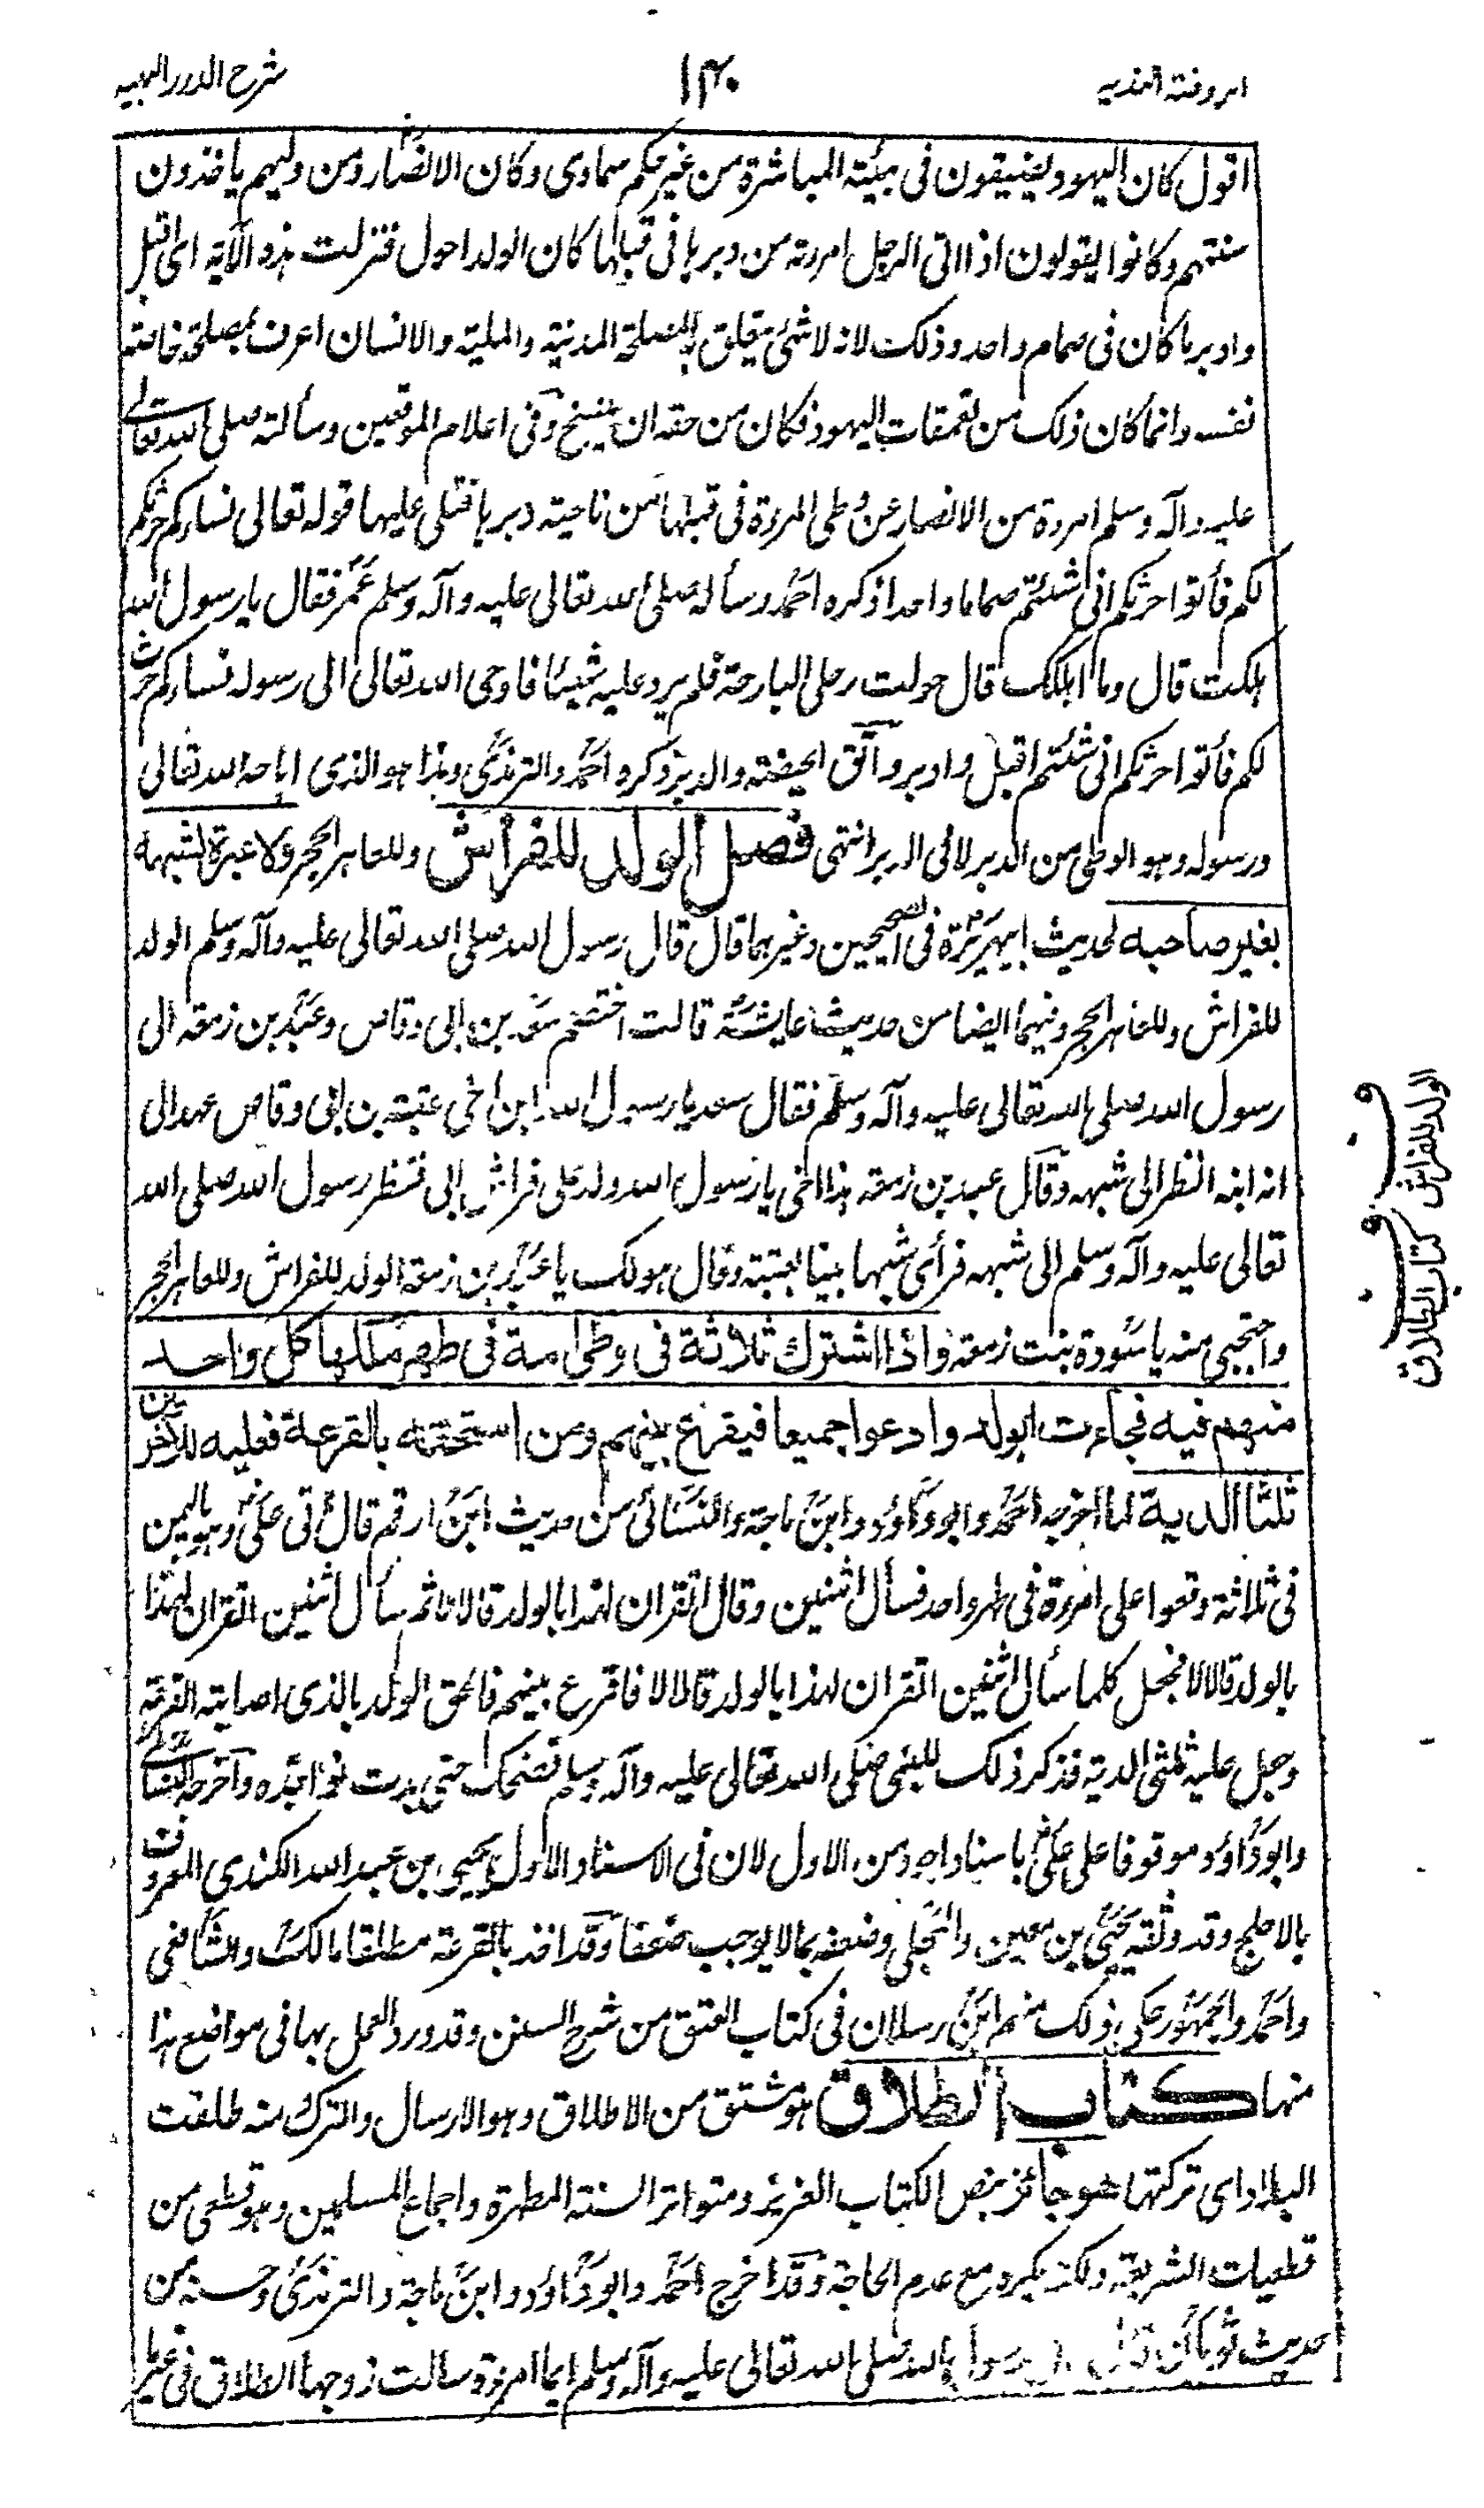 الروضة الندية
١٤٠
شرح الدرر البهية
اقول كان اليهود يضيقون فى هيئة المباشرة من غير حكم سماوى وكان الانصار ومن وليهم يأخذون
سنتهم وكانوا يقولون اذا اتى الرجل امرءته من دبرها فى قبلها كان الولد احول فنزلت هذه الآية اى اقبل
وادبر ما كان فى صمام واحد وذلك لانه لا شئ يتعلق به المصلحة المدنية والملية والانسان اعرف بمصلحة خاصة
نفسه وانما كان ذلك من تعمقات اليهود فكان من حقه ان ينسخ وفى اعلام الموقعين وسألته صلى الله تعالى
عليه وآله وسلم امرءة من الانصار عن وطى المرءة فى قبلها من ناحية دبرها فتلى عليها قوله تعالى نساءكم حرث
لكم فأتوا حرثكم انى شئتم صماما واحدا ذكره احمد وسأله صلى الله تعالى عليه وآله وسلم عمر فقال يا رسول الله
هلكت قال وما اهلكك قال حولت رحلى البارحة فلم يرد عليه شيئا فاوحى الله تعالى الى رسوله نساءكم حرث
لكم فأتوا حرثكم انى شئتم اقبل وادبر واتق الحيضة والدبر ذكره احمد والترمذى وهذا هو الذى اباحه الله تعالى
ورسوله وهو الوطى من الدبر لا فى الدبر انتهى فصل الولد للفراش وللعاهر الحجر ولا عبرة لشبهه
بغير صاحبه لحديث ابيهريرة فى الصحيحين وغيرهما قال قال رسول الله صلى الله تعالى عليه وآله وسلم الولد
للفراش وللعاهر الحجر وفيهما ايضا من حديث عايشة قالت اختصم سعد بن ابى وقاص وعبد بن زمعة الى
رسول الله صلى الله تعالى عليه وآله وسلم فقال سعد يا رسول الله ابن اخى عتبة بن ابى وقاص عهد الى
انه ابنه انظر الى شبهه وقال عبد بن زمعة هذا اخى يا رسول الله ولد على فراش ابى فنظر رسول الله صلى الله
تعالى عليه وآله وسلم الى شبهه فرأى شبها بينا بعتبة وقال هو لك يا عبد بن زمعة الولد للفراش وللعاهر الحجر
واحتجبى منه يا سودة بنت زمعة واذا اشترك ثلاثة فى وطى امة فى طهر ملكها كل واحد
منهم فيه فجاءت بولد وادعوا جميعا فيقرع بينهم ومن استحقه بالقرعة فعليه للآخرين
ثلثا الدية لما اخرجه احمد وابو داؤد وابن ماجة والنسائى من حديث ابن ارقم قال أتى على وهو باليمن
فى ثلاثة وقعوا على امرءة فى طهر واحد فسأل اثنين وقال اتقران لهذا بالولد قالا لا ثم سأل اثنين اتقران لهذا
بالولد قالا لا فجعل كلما سأل اثنين اتقران لهذا بالولد قالا لا فاقرع بينهم فالحق الولد بالذى اصابته القرعة
وجعل عليه ثلثى الدية فذكر ذلك للنبى صلى الله تعالى عليه وآله وسلم فضحك حتى بدت نواجذه وأخرجه النسائى
وابو داؤد موقوفا على على باسناد اجود من الاول لان فى الاسناد الاول يحيى بن عبد الله الكندى المعروف
بالاجلح وقد وثقه يحيى بن معين والعجلى وضعفه بما لا يوجب ضعفا وقد اخذ بالقرعة مطلقا مالك والشافعى
واحمد والجمهور حكى ذلك منهم ابن رسلان فى كتاب العتق من شرح السنن وقد ورد العمل بها فى مواضع هذا
منها كتاب الطلاق هو مشتق من الاطلاق وهو الارسال والترك منه طلقت
البلاد اى تركتها هو جائز بنص الكتاب العزيز ومتواتر السنة المطهرة واجماع المسلمين وهو قطعى من
قطعيات الشريعة ولكنه يكره مع عدم الحاجة وقد اخرج احمد وابو داؤد وابن ماجة والترمذى وحسنه من
حديث ثوبان قال قال رسول الله صلى الله تعالى عليه وآله وسلم ايما امرءة سالت زوجها الطلاق فى غير
الولد للفراش
كتاب الطلاق